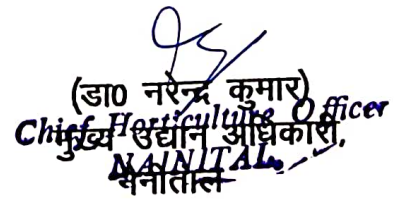 (डा0 नरेन्द्र कुमार)
Chief Horticulture Officer
मुख्य उद्यान अधिकारी,
NAINITAL.
नैनीताल